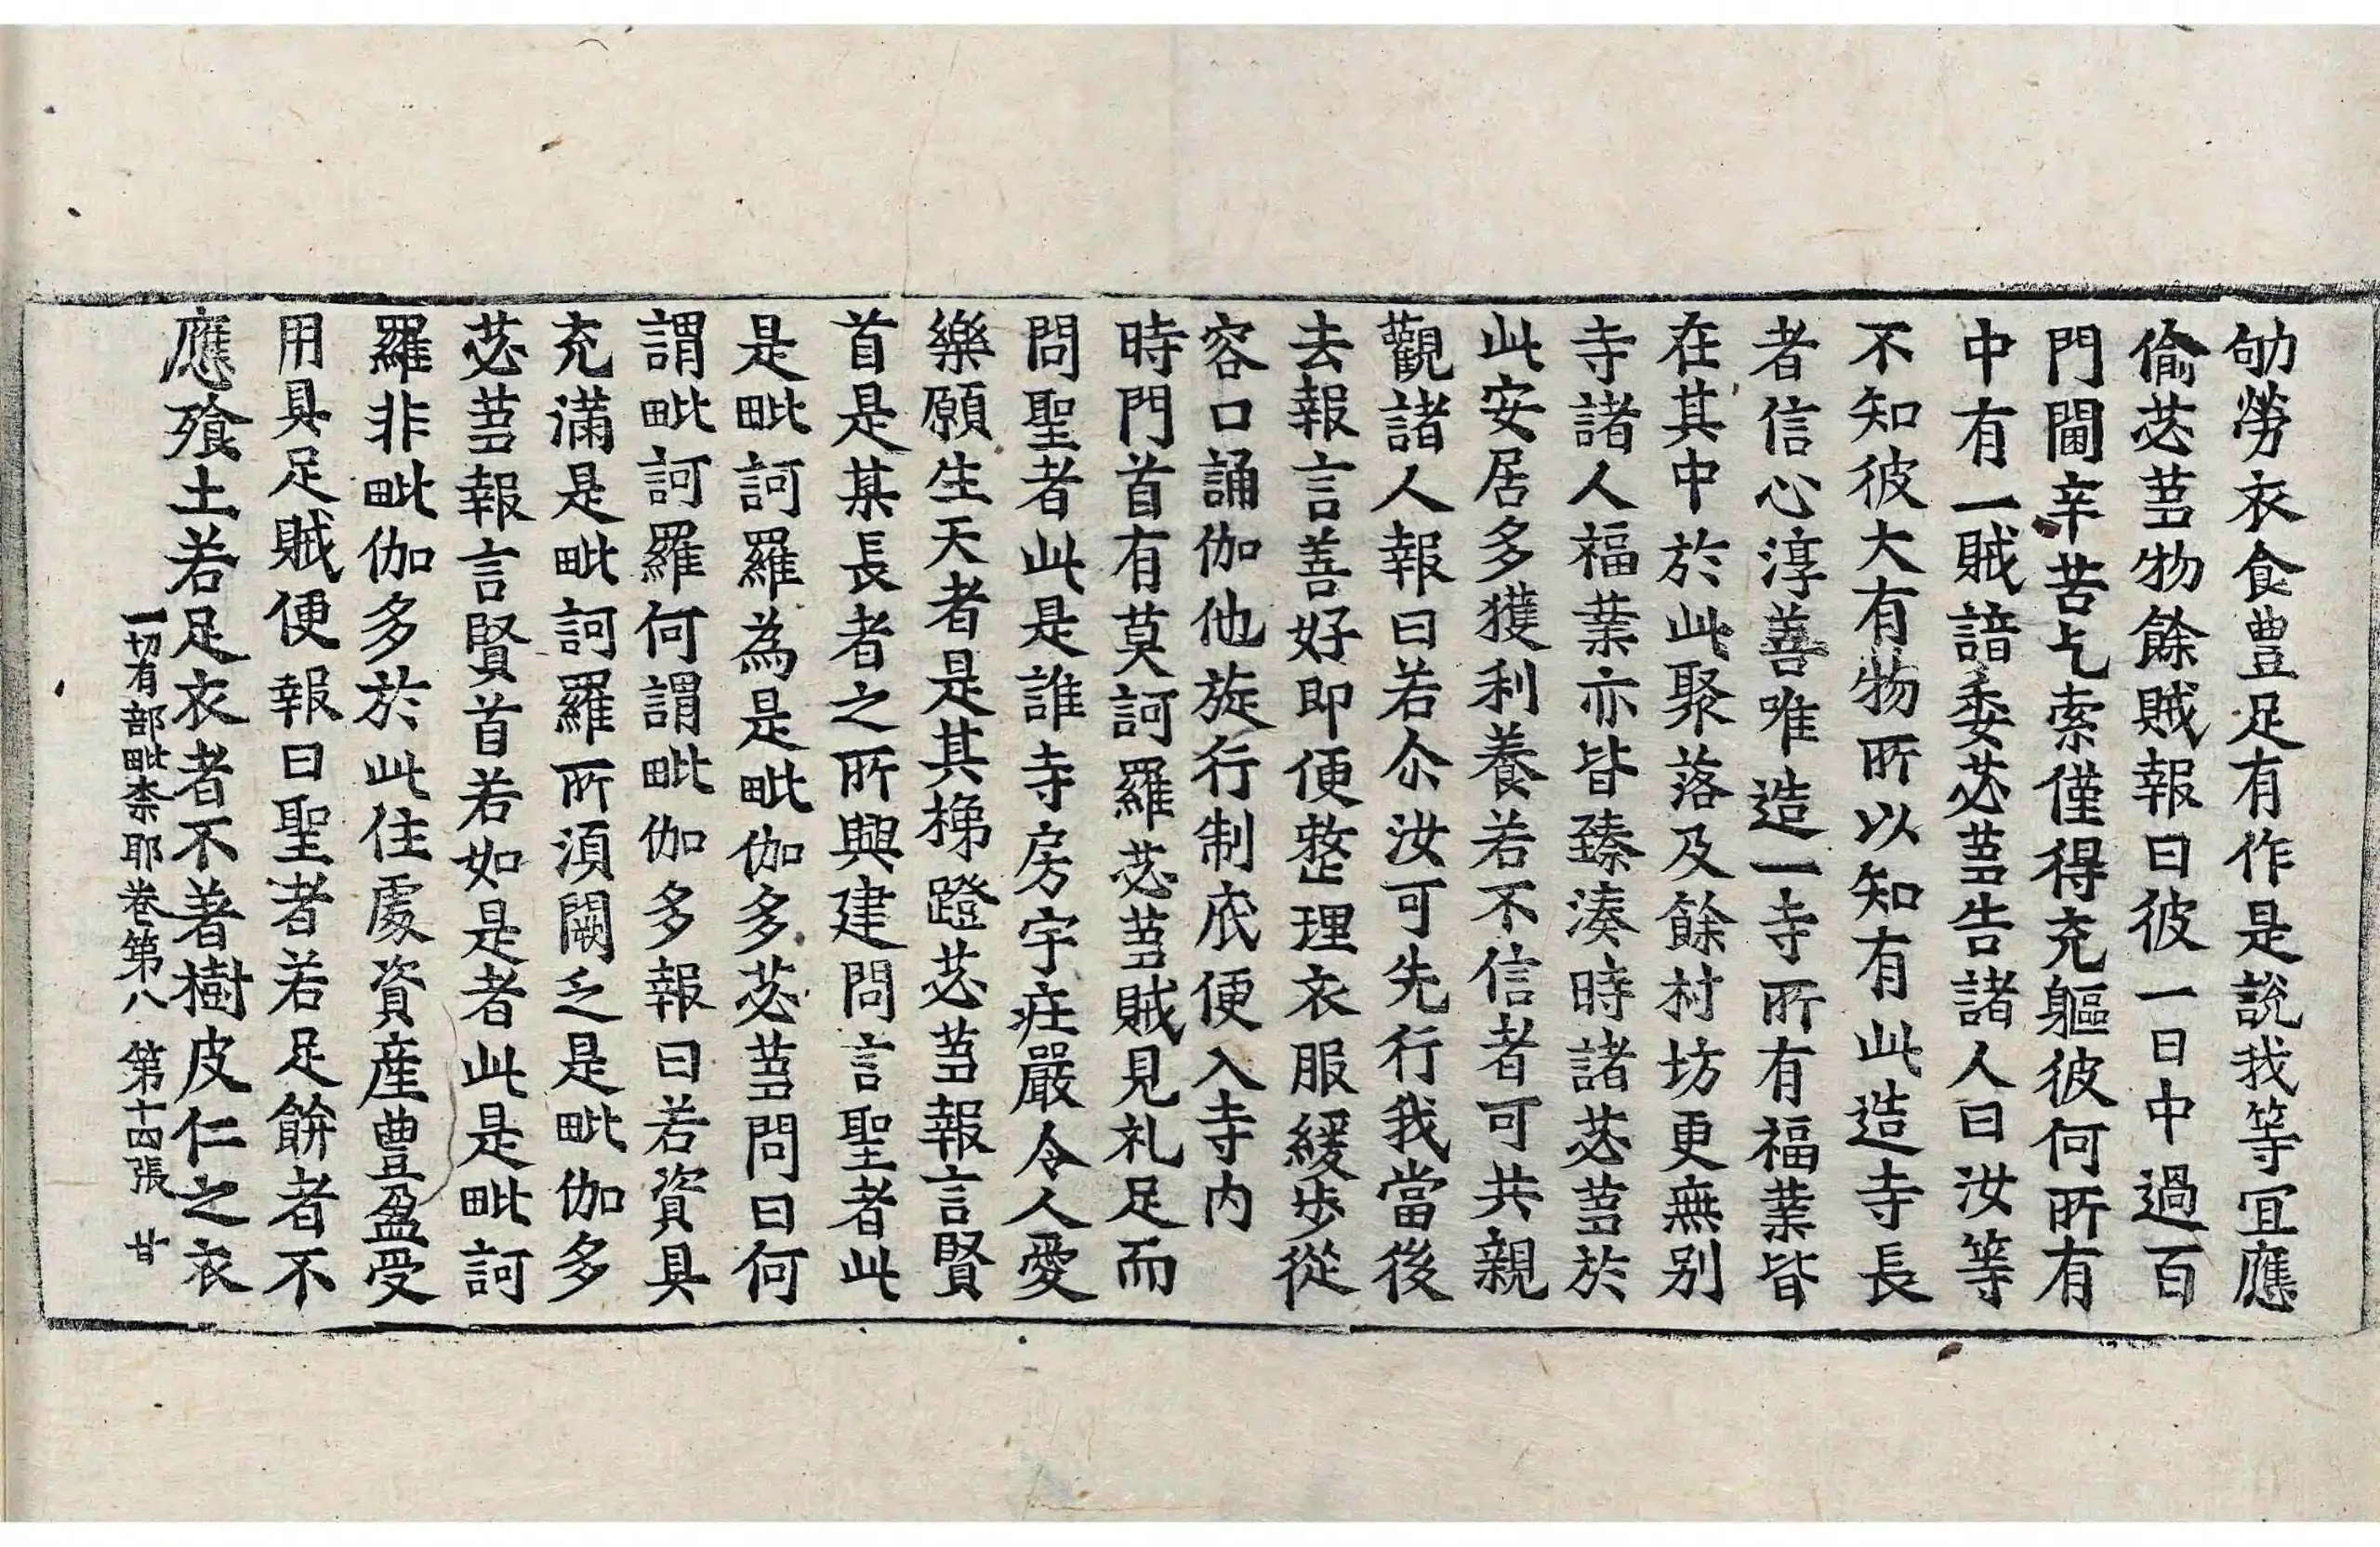 劬勞衣食豊足有作是說我等宜應
偷苾蒭物餘賊報曰彼一日中過百
門閫辛苦乞索僅得充軀彼何所有
中有一賊諳委苾蒭告諸人曰汝等
不知彼大有物所以知有此造寺長
者信心淳善唯造一寺所有福業皆
在其中於此聚落及餘村坊更無別
寺諸人福業亦皆臻湊時諸苾蒭於
此安居多獲利養若不信者可共親
觀諸人報曰若尒汝可先行我當後
去報言善好即便整理衣服緩步從
容口誦伽他旋行制底便入寺内
時門首有莫訶羅苾蒭賊見礼足而
問聖者此是誰寺房宇莊嚴令人愛
樂願生天者是其梯蹬苾蒭報言賢
首是某長者之所興建問言聖者此
是毗訶羅為是毗伽多苾蒭問曰何
謂毗訶羅何謂毗伽多報曰若資具
充滿是毗訶羅所須闕乏是毗伽多
苾蒭報言賢首若如是者此是毗訶
羅非毗伽多於此住處資產豊盈受
用具足賊便報曰聖者若足餅者不
應飡土若足衣者不著樹皮仁之衣
一切有部毗柰耶卷第八　第十四張　甘